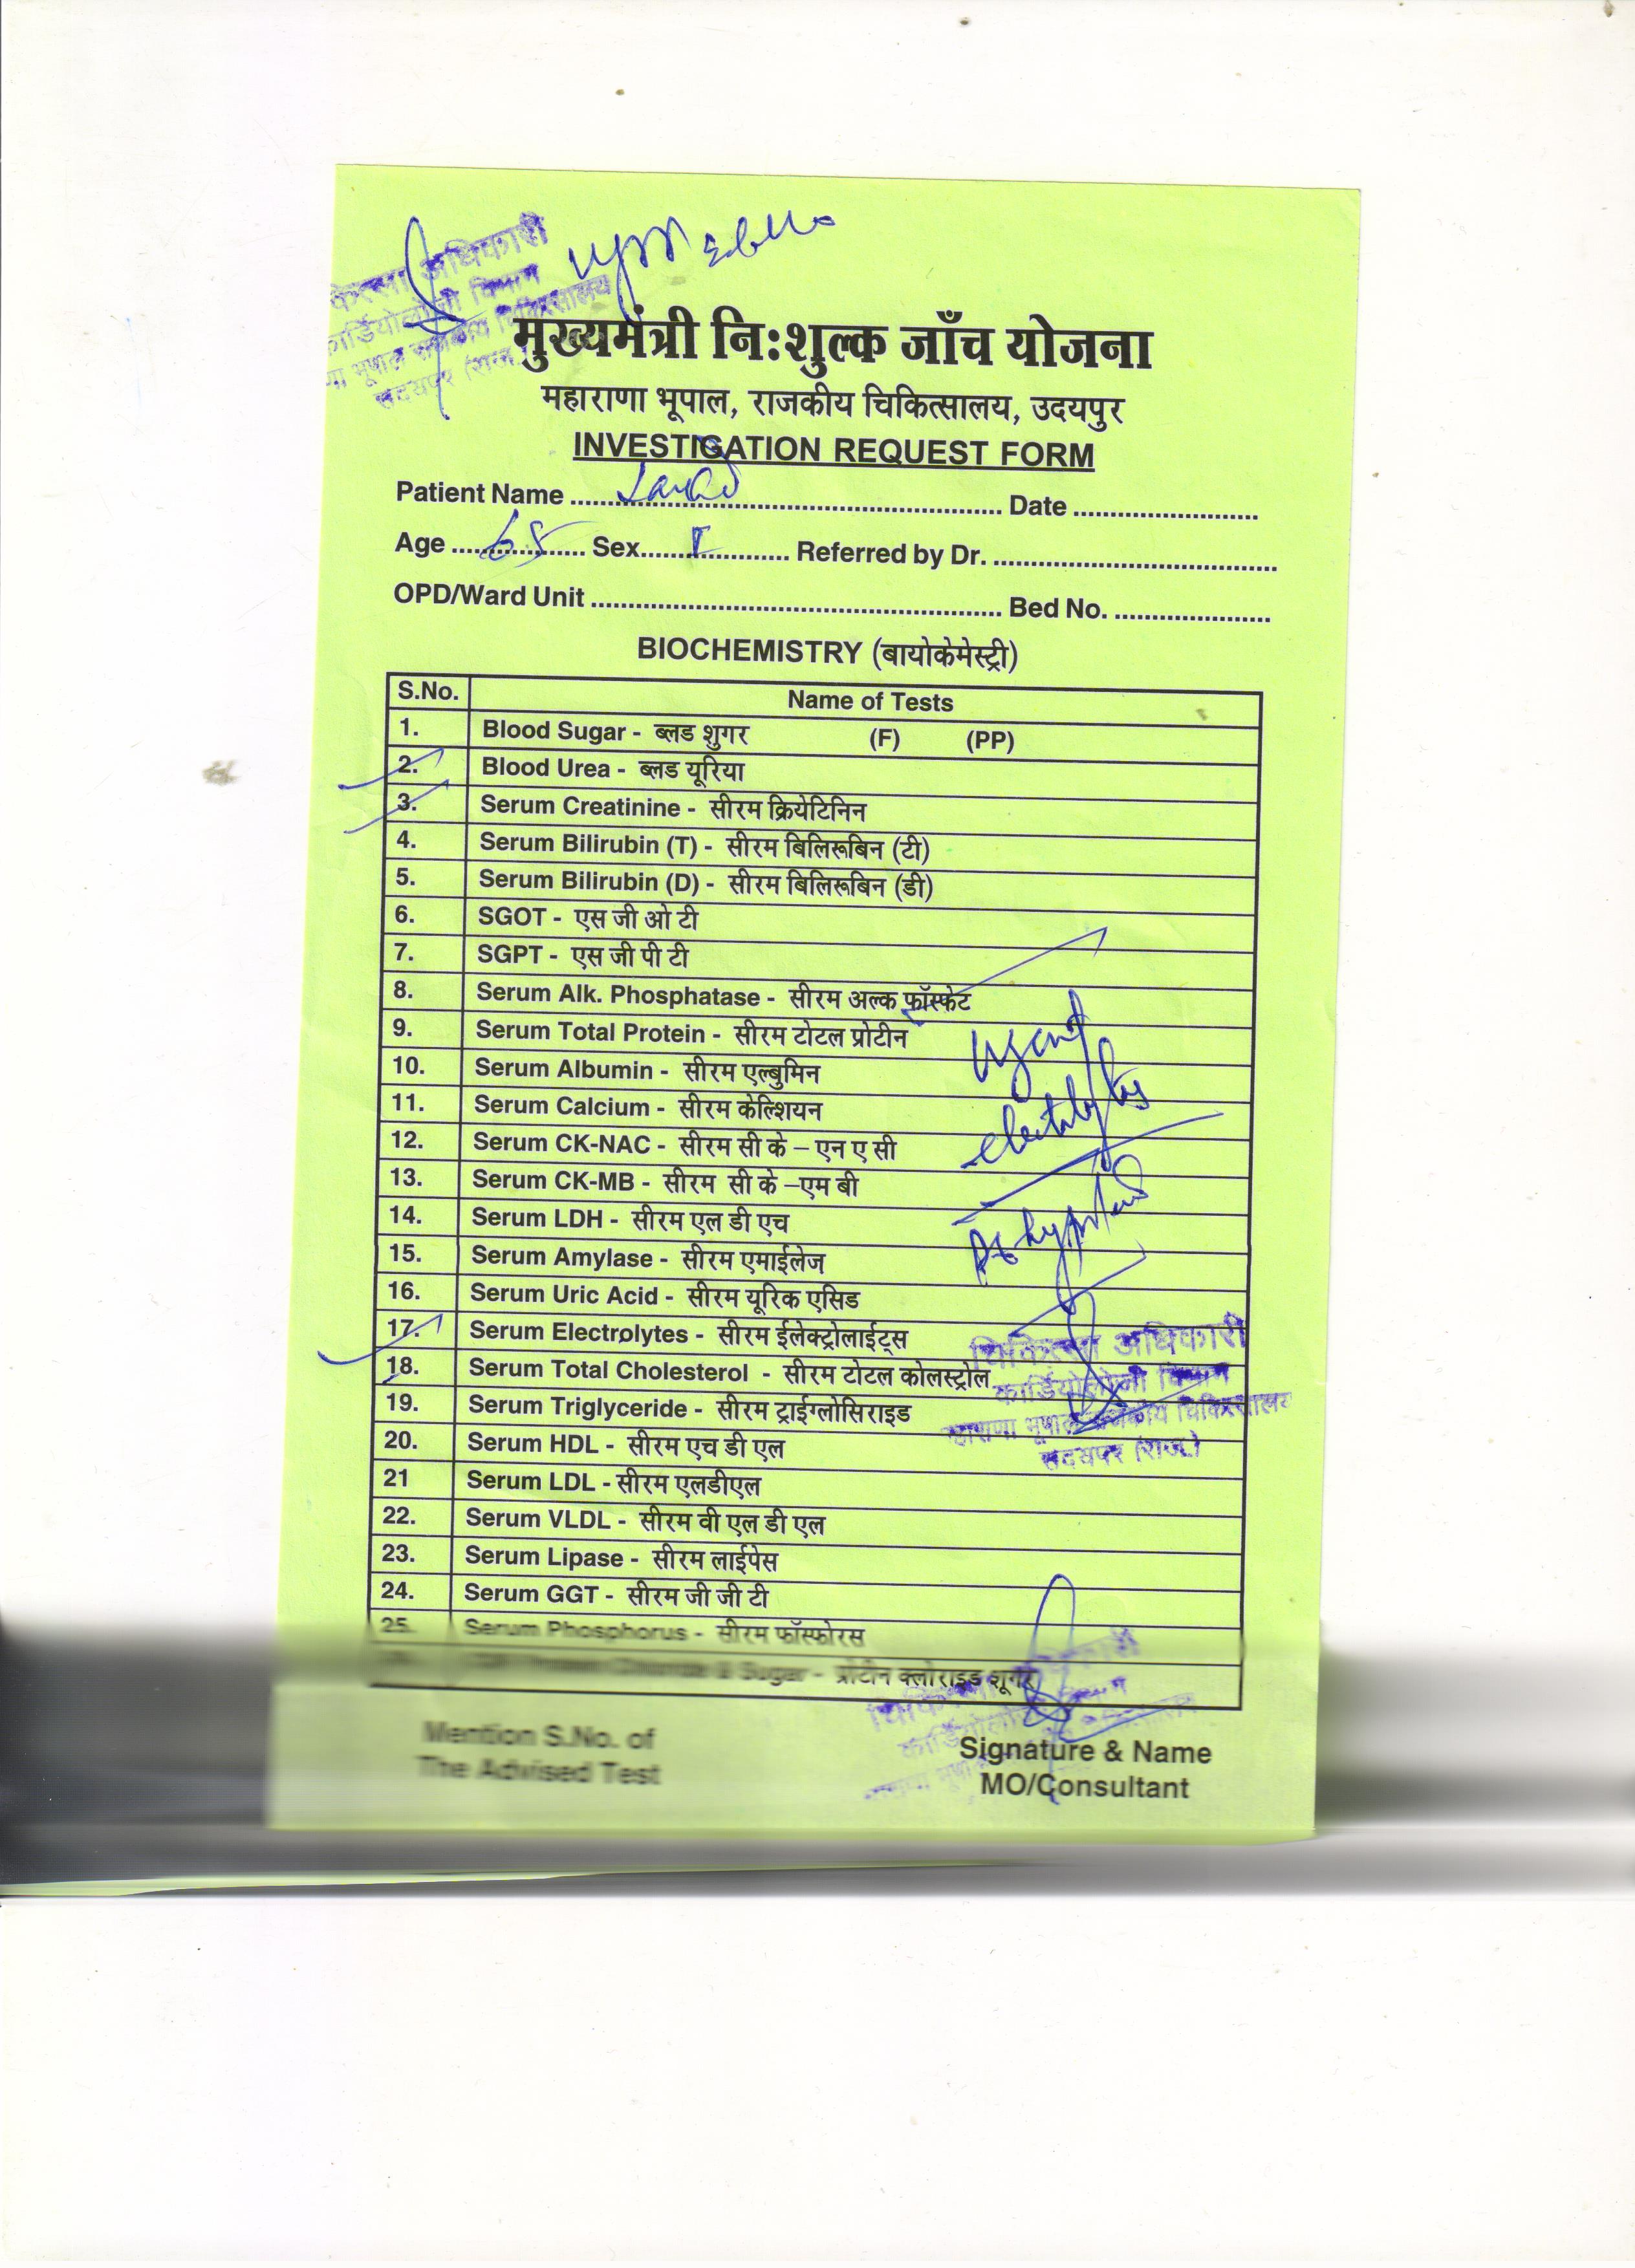 चिकित्सा अधिकारी
कार्डियोलोजी विभाग
महाराणा भूपाल राजकीय चिकित्सालय
उदयपुर (राज.)
मुख्यमंत्री नि:शुल्क जाँच योजना
महाराणा भूपाल, राजकीय चिकित्सालय, उदयपुर
INVESTIGATION REQUEST FORM
Patient Name ........ Date ........
Age ...65... Sex........ Referred by Dr. ........
OPD/Ward Unit ........ Bed No. ........
BIOCHEMISTRY (बायोकेमेस्ट्री)
S.No. Name of Tests
1. Blood Sugar - ब्लड शुगर (F) (PP)
2. Blood Urea - ब्लड यूरिया
3. Serum Creatinine - सीरम क्रियेटिनिन
4. Serum Bilirubin (T) - सीरम बिलिरूबिन (टी)
5. Serum Bilirubin (D) - सीरम बिलिरूबिन (डी)
6. SGOT - एस जी ओ टी
7. SGPT - एस जी पी टी
8. Serum Alk. Phosphatase - सीरम अल्क फॉस्फेट
9. Serum Total Protein - सीरम टोटल प्रोटीन
10. Serum Albumin - सीरम एल्बुमिन
11. Serum Calcium - सीरम केल्शियन
12. Serum CK-NAC - सीरम सी के – एन ए सी
13. Serum CK-MB - सीरम सी के –एम बी
14. Serum LDH - सीरम एल डी एच
15. Serum Amylase - सीरम एमाईलेज
16. Serum Uric Acid - सीरम यूरिक एसिड
17. Serum Electrolytes - सीरम ईलेक्ट्रोलाईट्स
18. Serum Total Cholesterol - सीरम टोटल कोलस्ट्रोल
19. Serum Triglyceride - सीरम ट्राईग्लोसिराइड
20. Serum HDL - सीरम एच डी एल
21 Serum LDL - सीरम एलडीएल
22. Serum VLDL - सीरम वी एल डी एल
23. Serum Lipase - सीरम लाईपेस
24. Serum GGT - सीरम जी जी टी
25. Serum Phosphorus - सीरम फॉस्फोरस
Sugar - प्रोटीन क्लोराइड शूगर
urgent
electrolytes
चिकित्सा अधिकारी
कार्डियोलोजी विभाग
महाराणा भूपाल राजकीय चिकित्सालय
उदयपुर (राज.)
Mention S.No. of
The Advised Test
Signature & Name
MO/Consultant